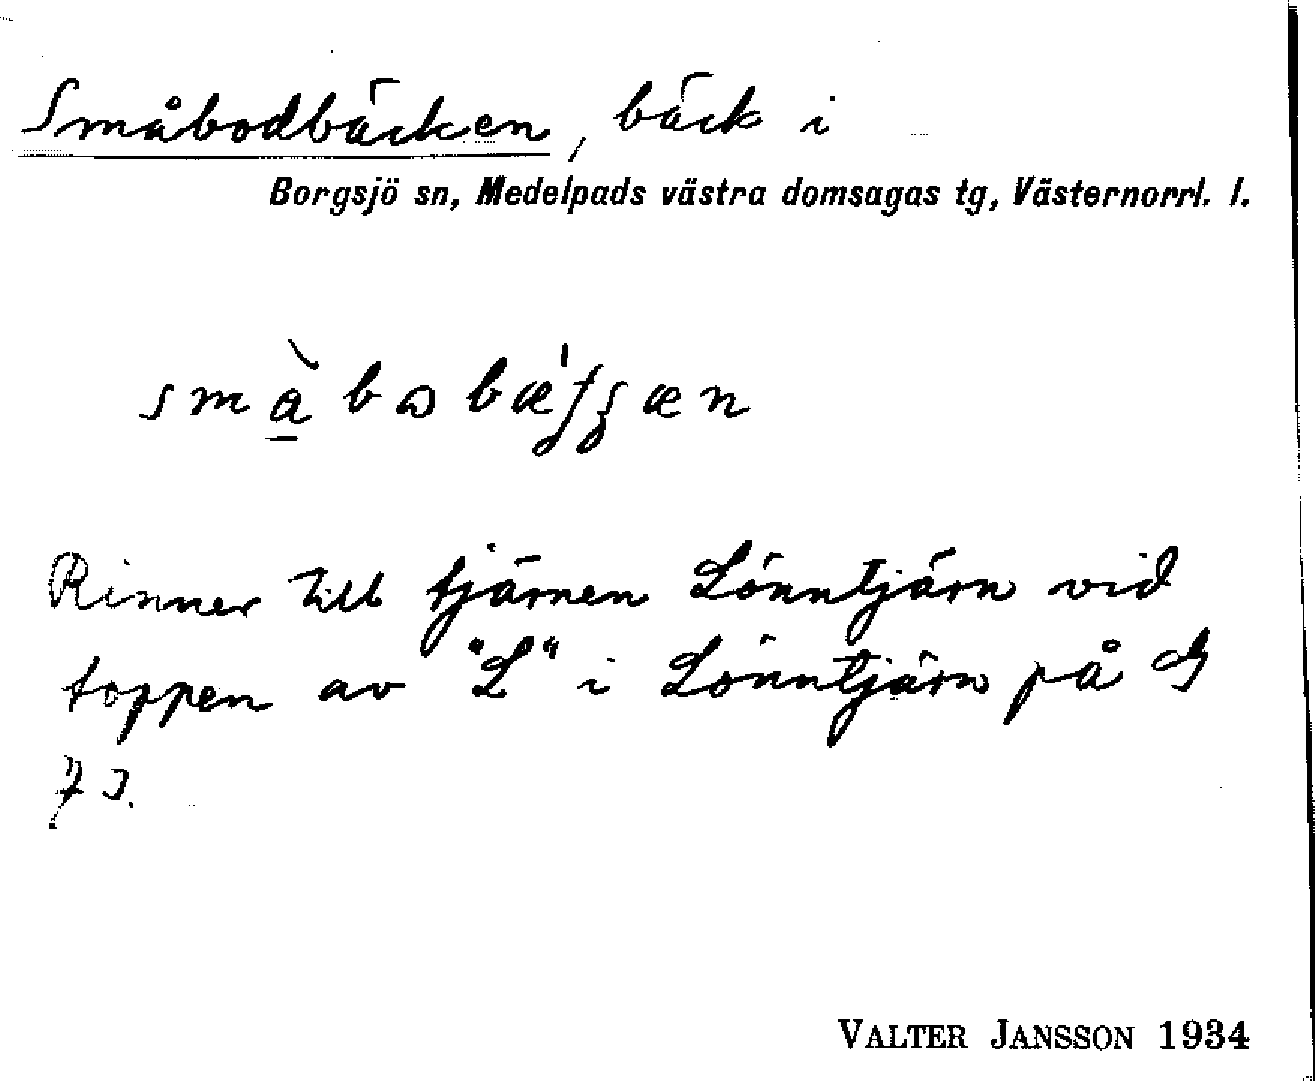 Småbodbäcken, bäck i
Borgsjö sn, Medelpads västra domsagas tg, Västernorrl. l.
Rinner till tjärnen Lönntjärn vid
toppen av "L" i Lönntjärn på G
73.
VALTER JANSSON 1934